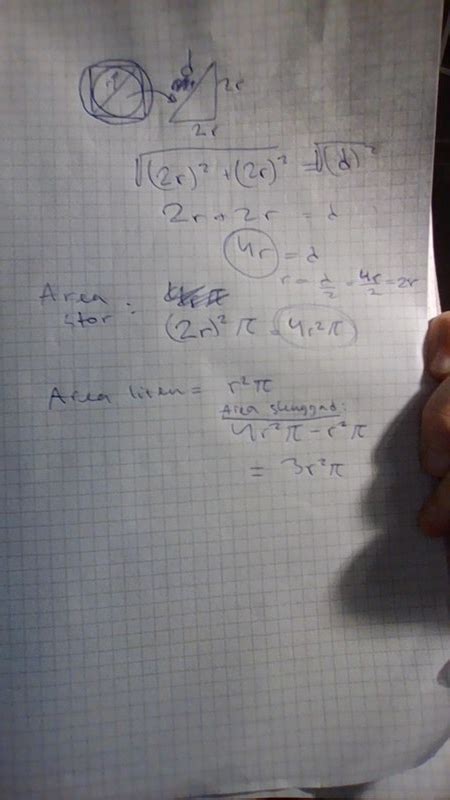 d
2r
2r
√((2r)² + (2r)²) = √(d)²
2r + 2r = d
4r = d
r = d/2 = 4r/2 = 2r
Area stor:
(2r)²π = 4r²π
Area liten = r²π
Area skuggad:
4r²π - r²π
= 3r²π